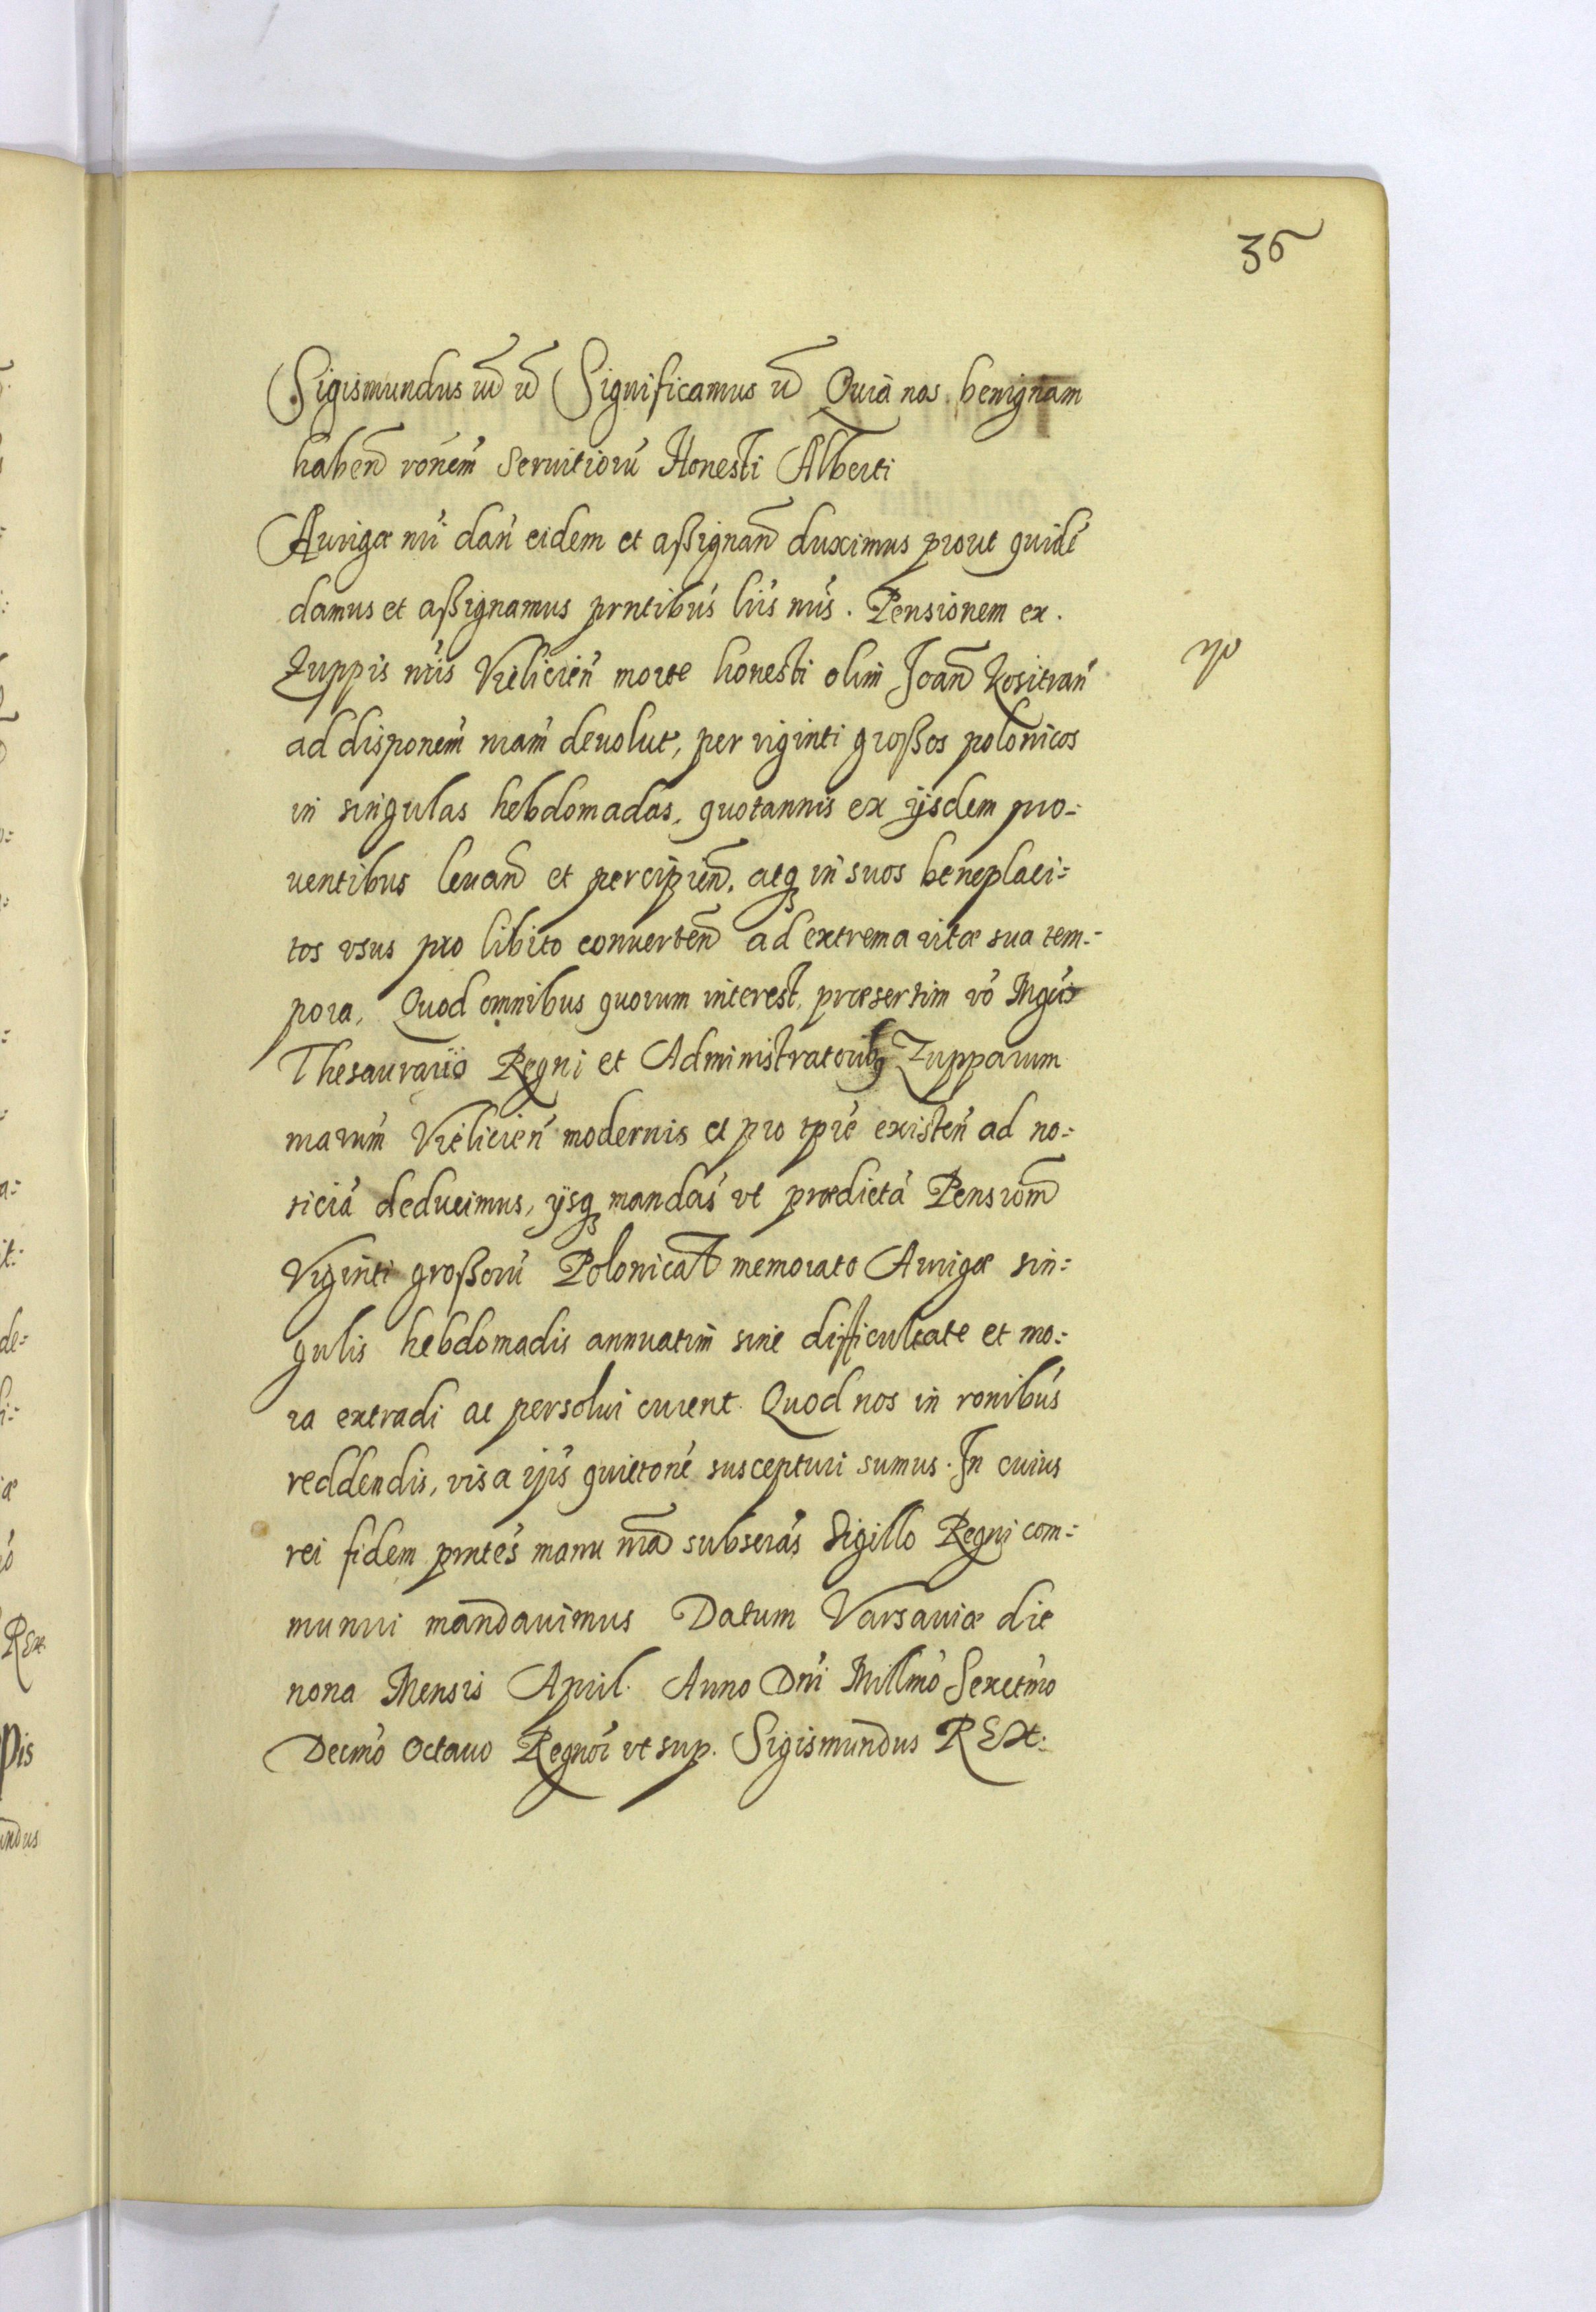 36
Sigismundus Significamus Quia nos benignam
haben ronem Seruitioru Honesti Alberti
Aurigæ nri dan eidem et aßignan duximus prout quidé
damus et aßignamus prntibus lris nris. Pensionem ex.
Zuppis nris Vielicien morte honesti olim Joan
ad disponem nram deuolut, per viginti großos polonicos
in singulas hebdomadas, quotannis ex ijsdem pro:
uentibus leuan et percipien, atq in suos beneplaci:
tos vsus pro libito conuerten ad extrema vitæ sua tem:
pora, Quod omnibus quorum interest, præsertim vo Mgco
Thesaurario Regni et Administratorib Zupparum
nrarum Vielicien modernis et pro tpre existen ad no:
ticiá deducimus, ijsq mandás vt prædictá Pensionem
Viginti großorú Polonical memorato Aurigæ sin:
gulis hebdomadis annuatim sine difficultate et mo:
ra extradi ac persolui curent. Quod nos in ronibus
reddendis, visa ipis quietone suscepturi sumus. In cuius
rei fidem prntes manu nra subscras Sigillo Regni com:
muniri mandauimus Datum Varsauiæ die
nona Mensis April. Anno Dni Millmo Sexctmo
Decmo Octauo Regnor vt sup. Sigismundus REX.